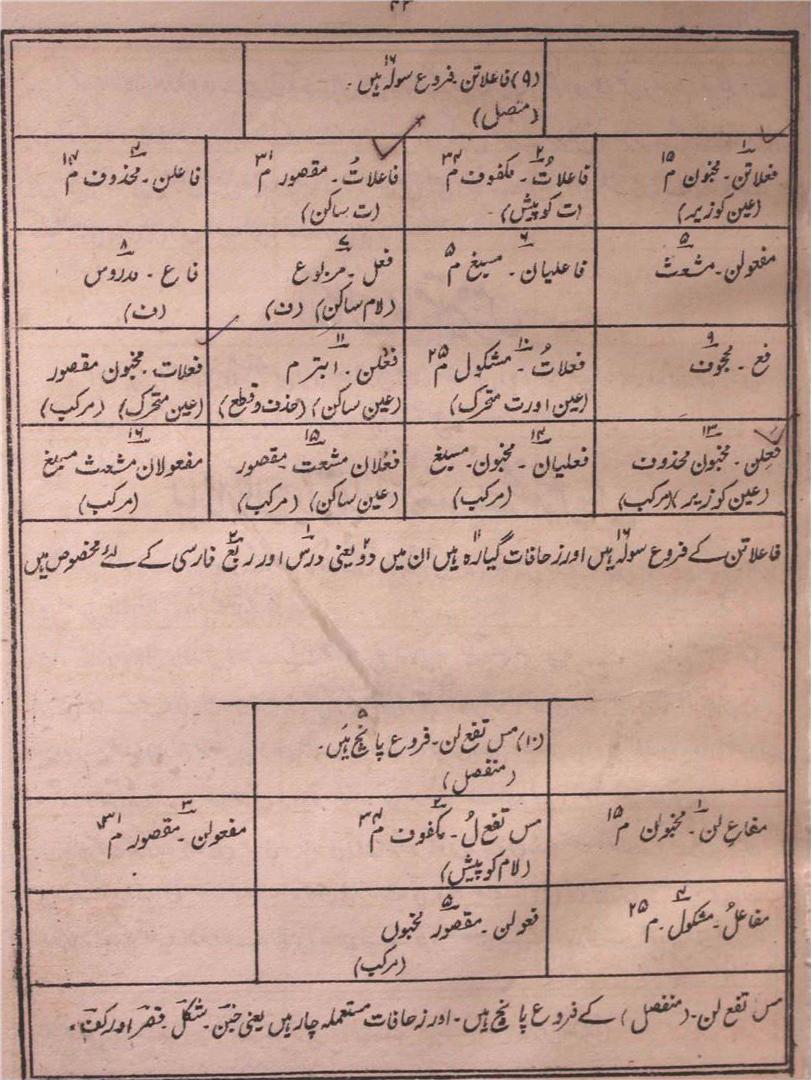 ۴۲
(۹) فاعلاتن ۔ فروع سولہ ۱۶ ہیں ۔
(متصل)
۱ فعلاتن ۔ مخبون م ۱۵
(عین کو زیر)
۲ فاعلاتُ ۔ مکفوف م ۳۴
(ت کو پیش) ۔
فاعلاتُ ۔ مقصور م ۳۱
(ت ساکن)
۴ فاعلن ۔ محذوف م ۱۴
۵ مفعولن ۔ مشعث
۶ فاعلیان ۔ مسبغ م ۵
۷ فعل ۔ مربوع
(لام ساکن) (ف)
۸ فاع ۔ مدروس
(ف)
۹ فع ۔ مجحوف
۱۰ فعلاتُ ۔ مشکول م ۲۵
(عین اور ت متحرک)
۱۱ فعْلن ۔ ابتر م
(عین ساکن) (حذف و قطع)
فعلات ۔ مخبون مقصور
(عین متحرک) (مرکب)
۱۳ فعِلن ۔ مخبون محذوف
(عین کو زیر) (مرکب)
۱۴ فعلیان ۔ مخبون ۔ مسبغ
(مرکب)
۱۵ فعْلان مشعث ۔ مقصور
(عین ساکن) (مرکب)
۱۶ مفعولان مشعث مسبغ
(مرکب)
فاعلاتن کے فروع سولہ ۱۶ ہیں اور زحافات گیارہ ۱۱ ہیں ان میں دو ۲ یعنی درس ۱ اور ربع ۲ فارسی کے لئے مخصوص ہیں
(۱۰) مس تفع لن ۔ فروع پانچ ۵ ہیں ۔
(منفصل)
۱ مفاع لن ۔ مخبون م ۱۵
۲ مس تفع لُ ۔ مکفوف م ۳۴
(لام کو پیش)
۳ مفعولن ۔ مقصور م ۳۱
۴ مفاعلُ ۔ مشکول ۔ م ۲۵
۵ فعولن ۔ مقصور مخبون
(مرکب)
مس تفع لن ۔ (منفصل) کے فروع پانچ ہیں ۔ اور زحافات مستعملہ چار ہیں یعنی خبن ۔ شکل ۔ قصر اور کف ۔